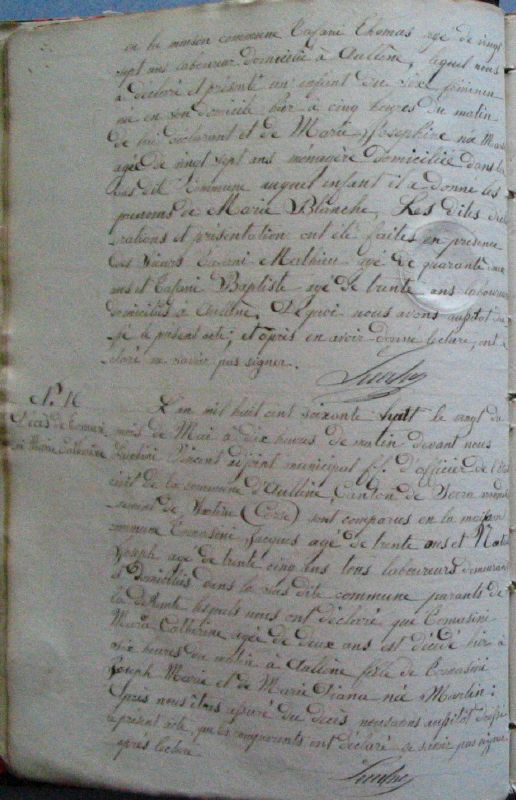 en la maison commune Cafani Thomas agé de vingt
sept ans laboureur domicilié à Aullène, lequel nous
a déclaré et présenté un enfant du sexe féminin
né en son domicile hier à cinq heures du matin
de lui déclarant et de Marie Joséphine née
agée de vingt sept ans ménagère domiciliée dans la
sus dite Commune auquel enfant il a donné les
prenoms de Marie Blanche, Les dites décla
rations et présentation ont été faites en présence
des sieurs Mathieu agé de quarante
ans et Cafani Baptiste agé de trente ans laboureurs
domiciliés à Aullène, De quoi nous avons aussitot
le présent acte; et après en avoir donné lecture, ont
claré ne savoir pas signer.
N. 16
Décés de Tomasini
Marie Catherine
L'an mil huit cent soixante huit le vingt du
mois de Mai à dix heures du matin devant nous
Vincent adjoint municipal f.f. d'officier de l'état
civil de la commune d'Aullène, Canton de Serra
de Sartène (Corse) sont comparus en la maison
commune Tomasini Jacques agé de trente ans et
Joseph agé de trente cinq ans tous laboureurs demeurant
et Domiciliés dans la sus dite commune parents de
la défunte lesquels nous ont déclaré que Tomasini
Marie Catherine agée de deux ans est décédé hier à
six heures du matin à Aullène fille de Tomasini
Joseph Marie et de Marie Diana née Martin;
Après nous être assuré du décès nous avons aussitot dressé
le present acte, que les comparants ont déclaré ne savoir pas signer
après lecture